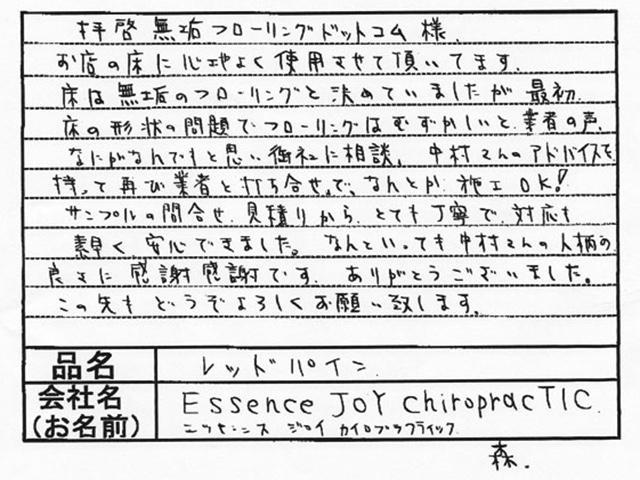 拝啓 無垢フローリングドットコム様.
お店の床に心地よく使用させて頂いてます.
床は無垢のフローリングと決めていましたが 最初.
床の形状の問題でフローリングはむずかしいと 業者の声.
なにがなんでもと思い御社に相談. 中村さんのアドバイスを
持って再び業者と打ち合せ.で、なんとか 施工OK!
サンプルの問合せ. 見積りから. とても丁寧で. 対応も
素早く 安心できました。 なんといっても中村さんの人柄の
良さに 感謝感謝です. ありがとうございました。
この先も どうぞよろしくお願い致します.
品名 レッドパイン
会社名 Essence JOY chiropracTIC.
(お名前) エッセンス ジョイ カイロプラクティック
森.